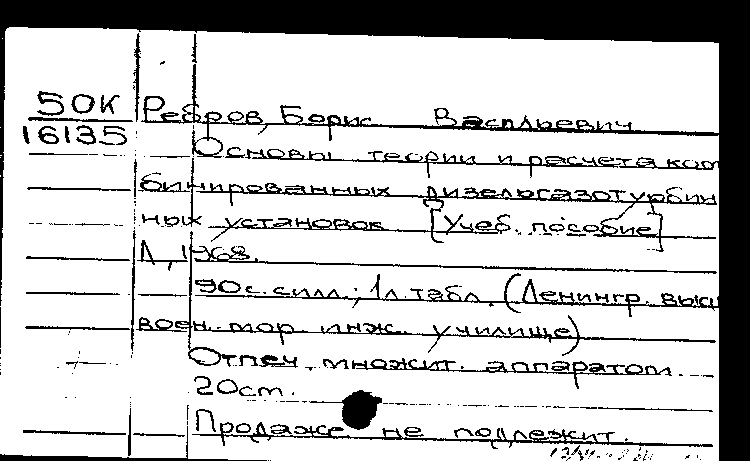 50К Ребров, Борис Васильевич
16135
Основы теории и расчета ком
бинированных дизельгазотурбин
ных установок [Учеб. пособие]
Л., 1968.
90с. с илл.; 1 л. табл. (Ленингр. высш
воен.-мор. инж. училище)
Отпеч. множит. аппаратом.
20 cm.
Продаже не подлежит.